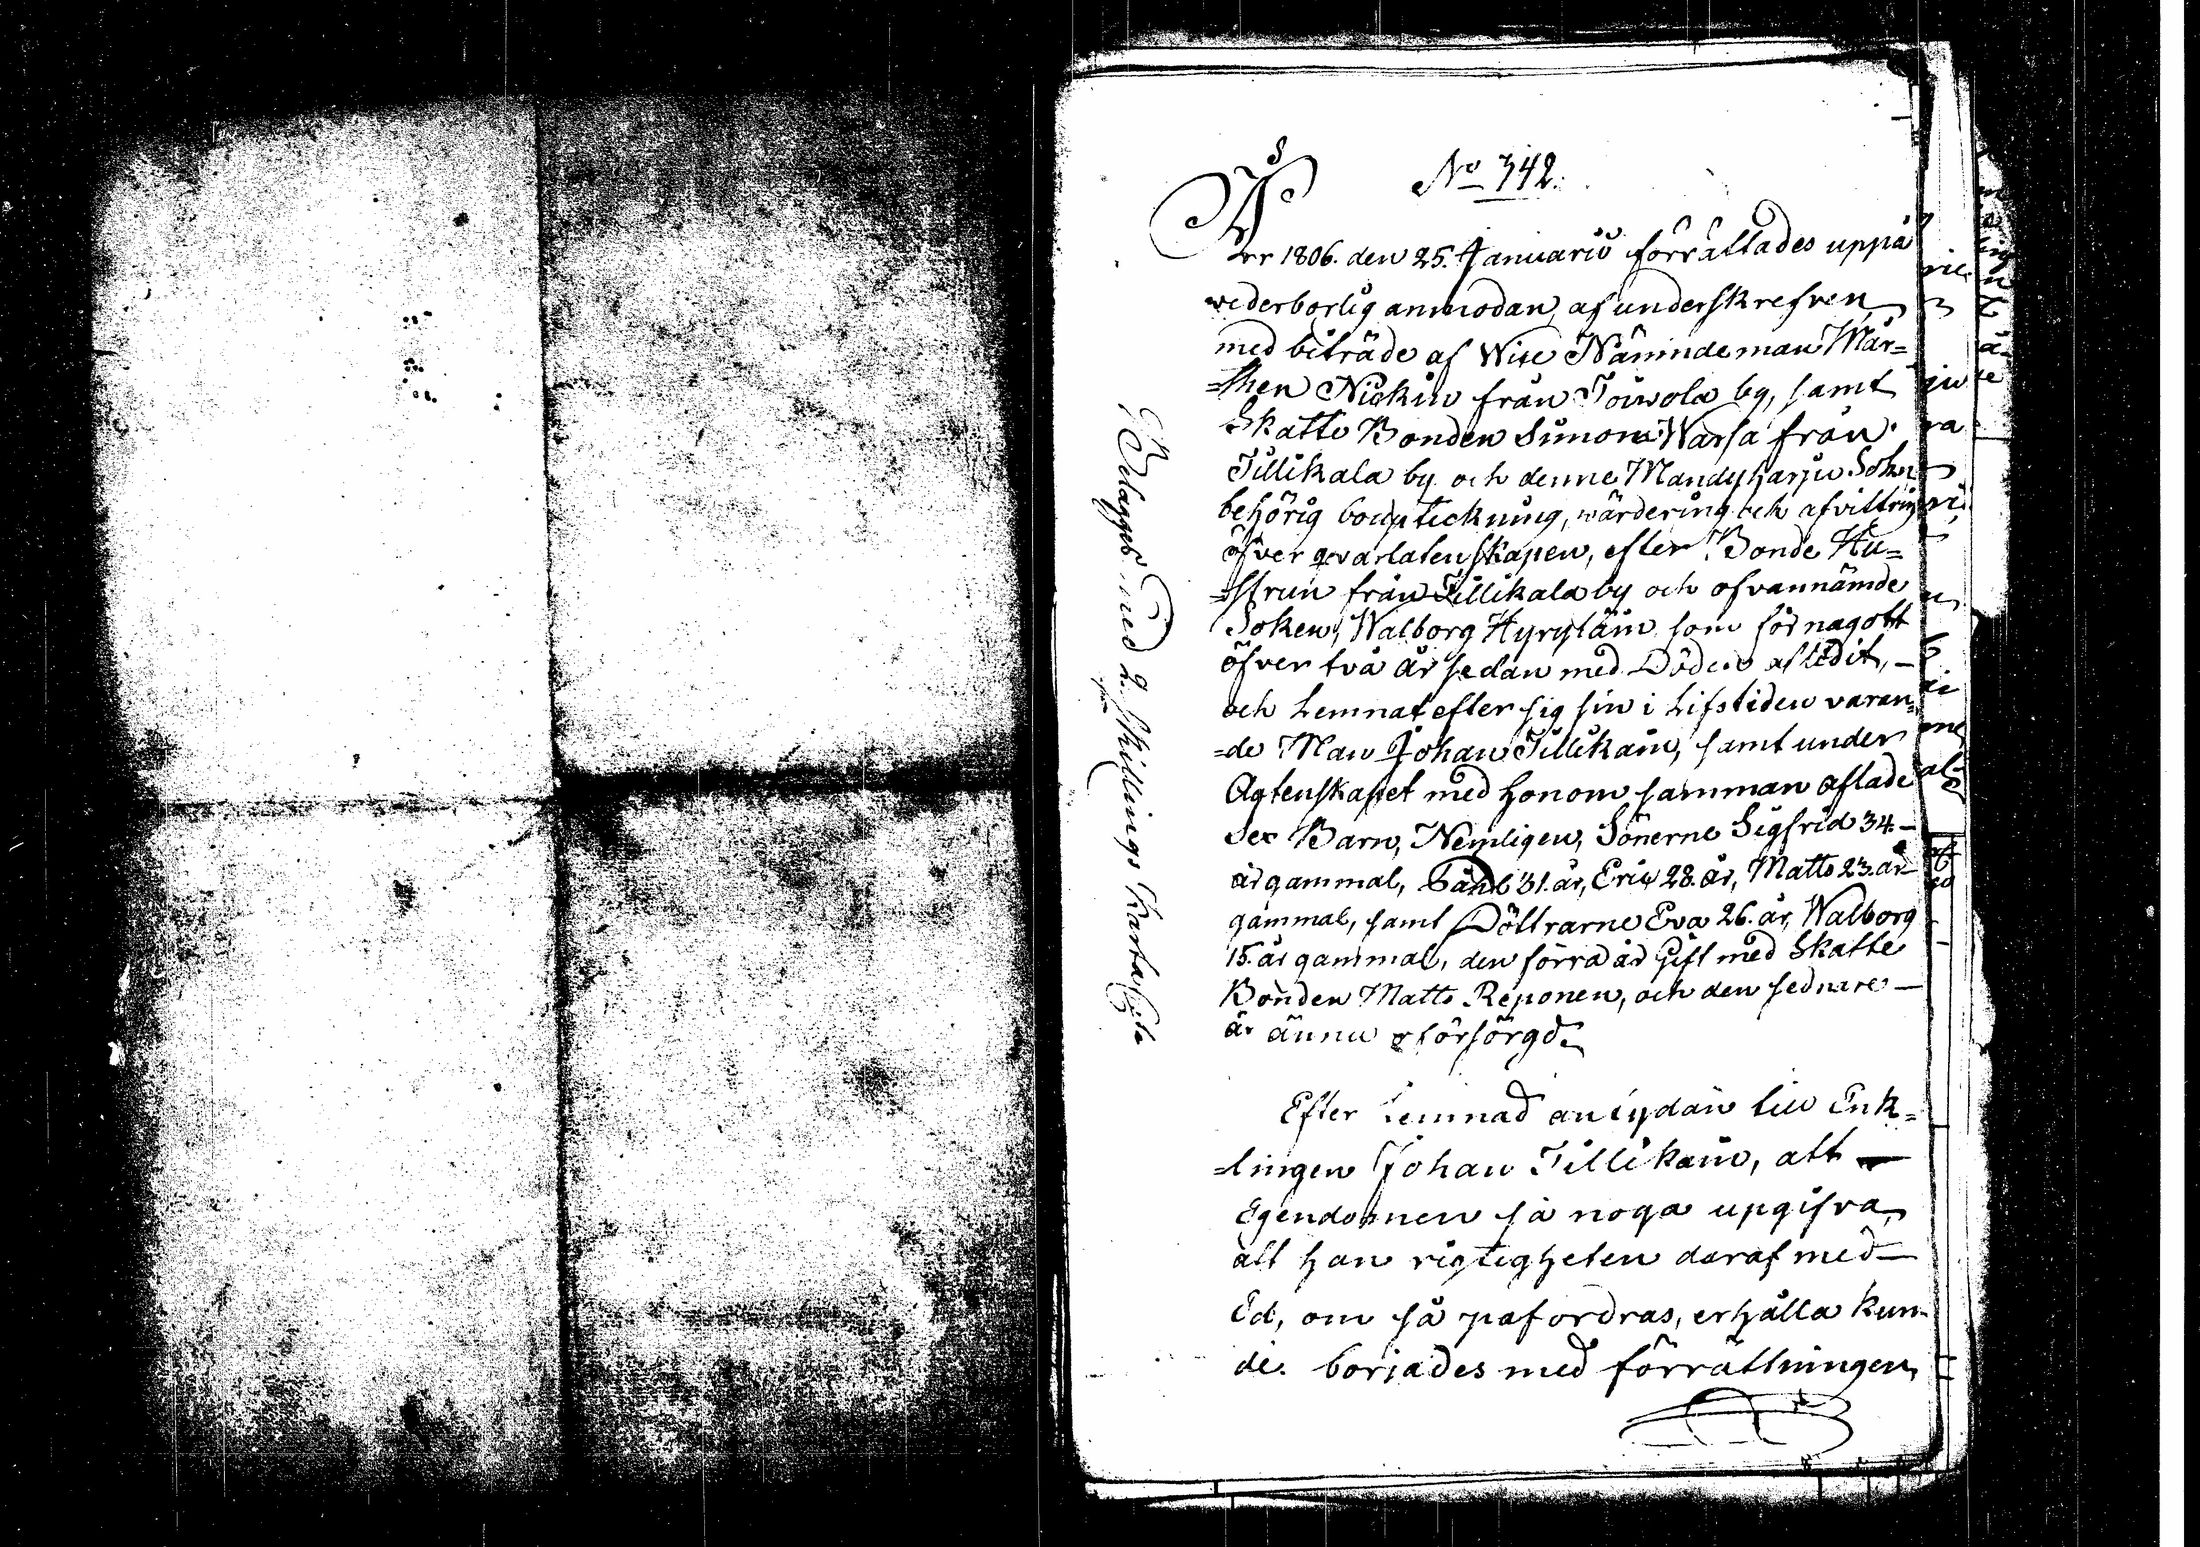 No 342.
År 1806. den 25. Januarii förrättades uppå
vederborlig anmodan, af underskrefven
med biträde af Wice Nämndeman Mår=
=then Nickin från Toiwola by, samt
Skatte Bonden Simon Warsa från
Tillikala by och denne Mandyharju Sokn
behörig bouptickning, wärdering och afvittring
öfver qvarlatenskapen, efter Bonde Hu=
=strun från Tillikala by och ofvannämde
Soken, Walborg Hyryläin som för nagott
öfver två år sedan med Döden aflidit, –
och Lemnat efter sig sin i Lifstiden varan=
=de Man Johan Tillikain, samt under
Ägtenskapet med honom samman aflade
Sex Barn, Nemligen, Sönerne Sigfrid 34 –
år gammal, 31. år, Eric 28. år, Matts 23. år
gammal, samt Döttrarne Eva 26. år, Walborg
15. år gammal, den förra är Gift med Skatte
Bonden Matts Reponen, och den sednare –
är ännu oförsörgd.
Efter Lemnad antydan till Enk=
=lingen Johan Tillikain, att –
Egendomen så noga upgifva,
att han rigtigheten daraf med –
Ed, om så pafordras, erhålla kun=
de. borjades med förrättningen,
Belagges med 2. skillings Karta